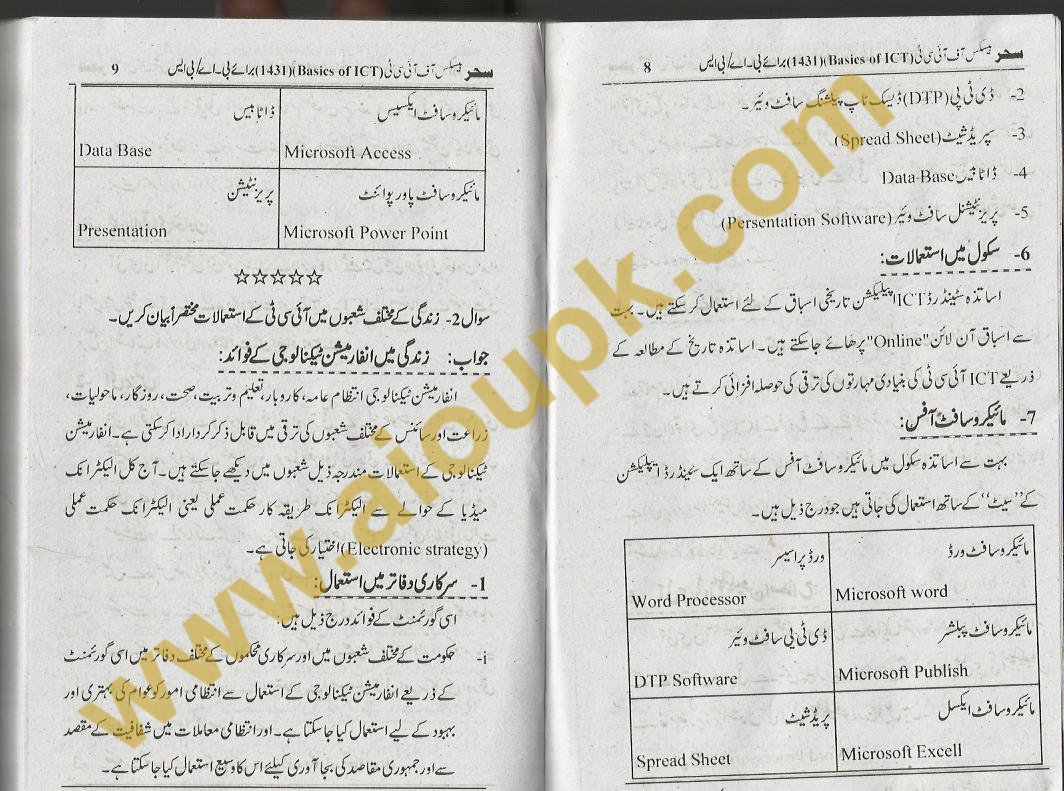 سحر بیسکس آف آئی سی ٹی (Basics of ICT)(1431) برائے بی۔اے/بی ایس 8
2- ڈی ٹی پی (DTP) ڈیسک ٹاپ پبلشنگ سافٹ وئیر۔
3- سپریڈ شیٹ (Spread Sheet)
4- ڈاٹا بیس Data-Base
5- پریزنٹیشنل سافٹ وئیر (Persentation Software)
6- سکول میں استعمالات:
اساتذہ سٹینڈرڈ ICT اپیلیکشن تاریخی اسباق کے لئے استعمال کر سکتے ہیں۔ بہت
سے اسباق آن لائن "Online" پرھائے جا سکتے ہیں۔ اساتذہ تاریخ کے مطالعہ کے
ذریعے ICT آئی سی ٹی کی بنیادی مہارتوں کی ترقی کی حوصلہ افزائی کرتے ہیں۔
7- مائیکرو سافٹ آفس:
بہت سے اساتذہ سکول میں مائیکرو سافٹ آفس کے ساتھ ایک سٹینڈرڈ اپیلیکشن
کے ”سیٹ“ کے ساتھ استعمال کی جاتی ہیں جو درج ذیل ہیں۔
مائیکرو سافٹ ورڈ ورڈ پراسیسر
Microsoft word Word Processor
مائیکرو سافٹ پبلشر ڈی ٹی پی سافٹ وئیر
Microsoft Publish DTP Software
مائیکرو سافٹ ایکسل سپریڈ شیٹ
Microsoft Excell Spread Sheet
سحر بیسکس آف آئی سی ٹی (Basics of ICT)(1431) برائے بی۔اے/بی ایس 9
مائیکرو سافٹ ایکسیس ڈاٹا بیس
Microsoft Access Data Base
مائیکرو سافٹ پاور پوائنٹ پریزنٹیشن
Microsoft Power Point Presentation
☆☆☆☆☆
سوال 2- زندگی کے مختلف شعبوں میں آئی سی ٹی کے استعمالات مختصراً بیان کریں۔
جواب: زندگی میں انفارمیشن ٹیکنالوجی کے فوائد:
انفارمیشن ٹیکنالوجی انتظام عامہ، کاروبار، تعلیم و تربیت، صحت، روزگار، ماحولیات،
زراعت اور سائنس کے مختلف شعبوں کی ترقی میں قابل ذکر کردار ادا کر سکتی ہے۔ انفارمیشن
ٹیکنالوجی کے استعمالات مندرجہ ذیل شعبوں میں دیکھے جا سکتے ہیں۔ آج کل الیکٹرانک
میڈیا کے حوالے سے الیکٹرانک طریقہ کار حکمت عملی یعنی الیکٹرانک حکمت عملی
(Electronic strategy) اختیار کی جاتی ہے۔
1- سرکاری دفاتر میں استعمال:
اسی گورئمنٹ کے فوائد درج ذیل ہیں:
i- حکومت کے مختلف شعبوں میں اور سرکاری محکموں کے مختلف دفاتر میں اسی گورئمنٹ
کے ذریعے انفارمیشن ٹیکنالوجی کے استعمال سے انتظامی امور کو عوام کی بہتری اور
بہبود کے لیے استعمال کیا جا سکتا ہے۔ اور انتظامی معاملات میں شفافیت کے مقصد
سے اور جمہوری مقاصد کی بجا آوری کیلئے اس کا وسیع استعمال کیا جا سکتا ہے۔
www.aioupk.com